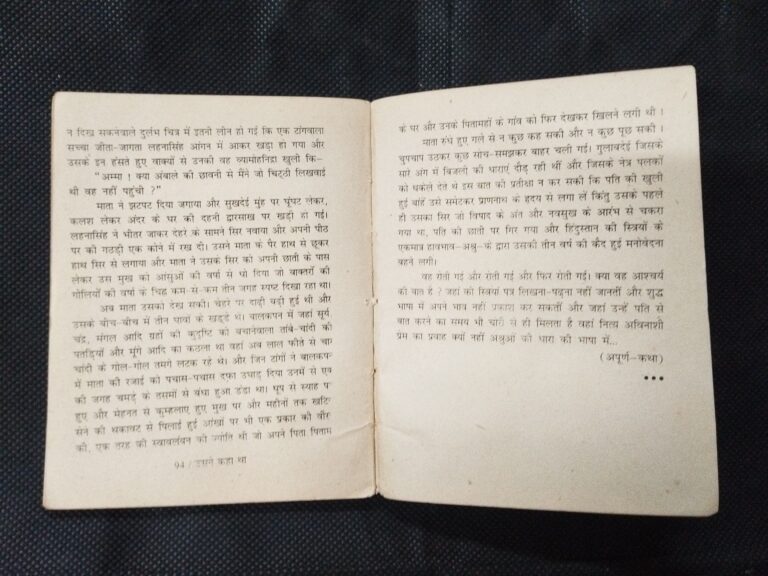 न दिख सकनेवाले दुर्लभ चित्र में इतनी लीन हो गई कि एक टांगवाला
सच्चा जीता-जागता लहनासिंह आंगन में आकर खड़ा हो गया और
उसके इन हंसते हुए वाक्यों से उनकी वह व्यामोहनिद्रा खुली कि-
"अम्मा ! क्या अंबाले की छावनी से मैंने जो चिट्ठी लिखवाई
थी वह नहीं पहुंची ?"
माता ने झटपट दिया जगाया और सुखदेई मुंह पर घूंघट लेकर,
कलश लेकर अंदर के घर की दहनी द्वारसाख पर खड़ी हो गई।
लहनासिंह ने भीतर जाकर देहरे के सामने सिर नवाया और अपनी पीठ
पर की गठड़ी एक कोने में रख दी। उसने माता के पैर हाथ से छूकर
हाथ सिर से लगाया और माता ने उसके सिर को अपनी छाती के पास
लेकर उस मुख को आंसुओं की वर्षा से धो दिया जो बाक्तरों की
गोलियों की वर्षा के चिह कम-से-कम तीन जगह स्पष्ट दिखा रहा था।
अब माता उसको देख सकी। चेहरे पर दाढ़ी बढ़ी हुई थी और
उसके बीच-बीच में तीन घावों के खड्डे थे। बालकपन में जहां सूर्य,
चंद्र, मंगल आदि ग्रहों की कुदृष्टि को बचानेवाला तांबे-चांदी की
पतड़ियों और मूंगे आदि का कठला था वहां अब लाल फीते से चार
चांदी के गोल-गोल तमगे लटक रहे थे। और जिन टांगों ने बालकपन
में माता की रजाई को पचास-पचास दफा उघाड़ दिया उनमें से एक
की जगह चमड़े के तसमों से बंधा हुआ डंडा था। धूप से स्याह पड़े
हुए और मेहनत से कुम्हलाए हुए मुख पर और महीनों तक खटिया
सेने की थकावट से पिलाई हुई आंखों पर भी एक प्रकार की वीरता
की, एक तरह की स्वावलंबन की ज्योति थी जो अपने पिता पितामह
94 / उसने कहा था
के घर और उनके पितामहों के गांव को फिर देखकर खिलने लगी थी !
माता रुंधे हुए गले से न कुछ कह सकी और न कुछ पूछ सकी।
चुपचाप उठकर कुछ सोच-समझकर बाहर चली गई। गुलाबदेई जिसके
सारे अंग में बिजली की धाराएं दौड़ रही थीं और जिसके नेत्र पलकों
को धकेले देते थे इस बात की प्रतीक्षा न कर सकी कि पति की खुली
हुई बांहें उसे समेटकर प्राणनाथ के हृदय से लगा लें किंतु उसके पहले
ही उसका सिर जो विषाद के अंत और नवसुख के आरंभ से चकरा
गया था, पति की छाती पर गिर गया और हिंदुस्तान की स्त्रियों के
एकमात्र हावभाव-अश्रु-के द्वारा उसकी तीन वर्ष की कैद हुई मनोवेदना
बहने लगी।
वह रोती गई और रोती गई और फिर रोती गई। क्या वह आश्चर्य
की बात है ? जहां की स्त्रियां पत्र लिखना-पढ़ना नहीं जानतीं और शुद्ध
भाषा में अपने भाव नहीं प्रकाश कर सकतीं और जहां उन्हें पति से
बात करने का समय भी चोरी से ही मिलता है वहां नित्य अविनाशी
प्रेम का प्रवाह क्यों नहीं अश्रुओं की धारा की भाषा में...
(अपूर्ण-कथा)
•••